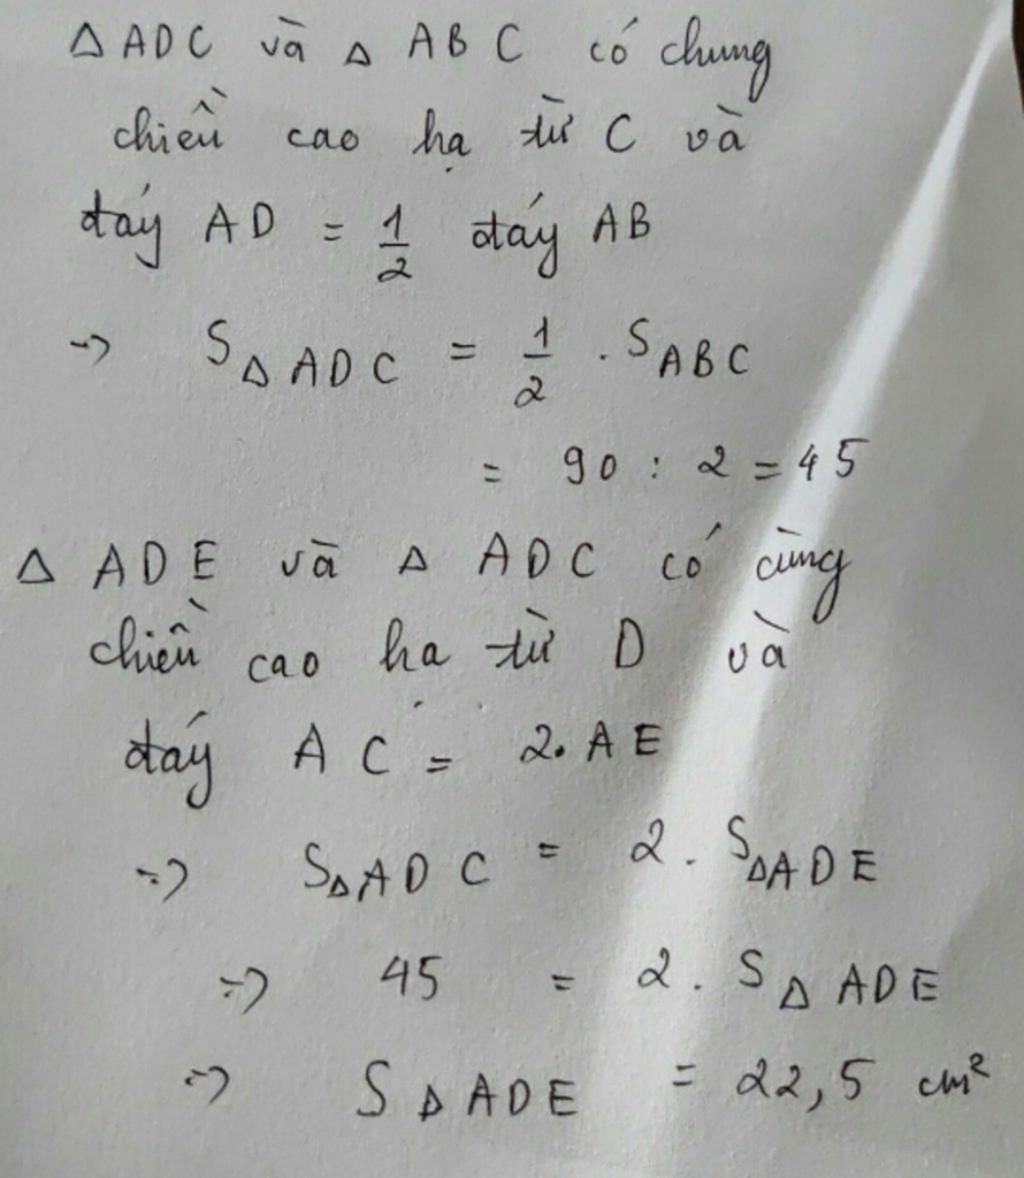 Δ ADC và Δ ABC có chung
chiều cao hạ từ C và
đáy AD = 1/2 đáy AB
=> S Δ ADC = 1/2 . S ABC
= 90 : 2 = 45
Δ ADE và Δ ADC có cùng
chiều cao hạ từ D và
đáy AC = 2. AE
=> S Δ ADC = 2 . S Δ ADE
=> 45 = 2 . S Δ ADE
=> S Δ ADE = 22,5 cm²